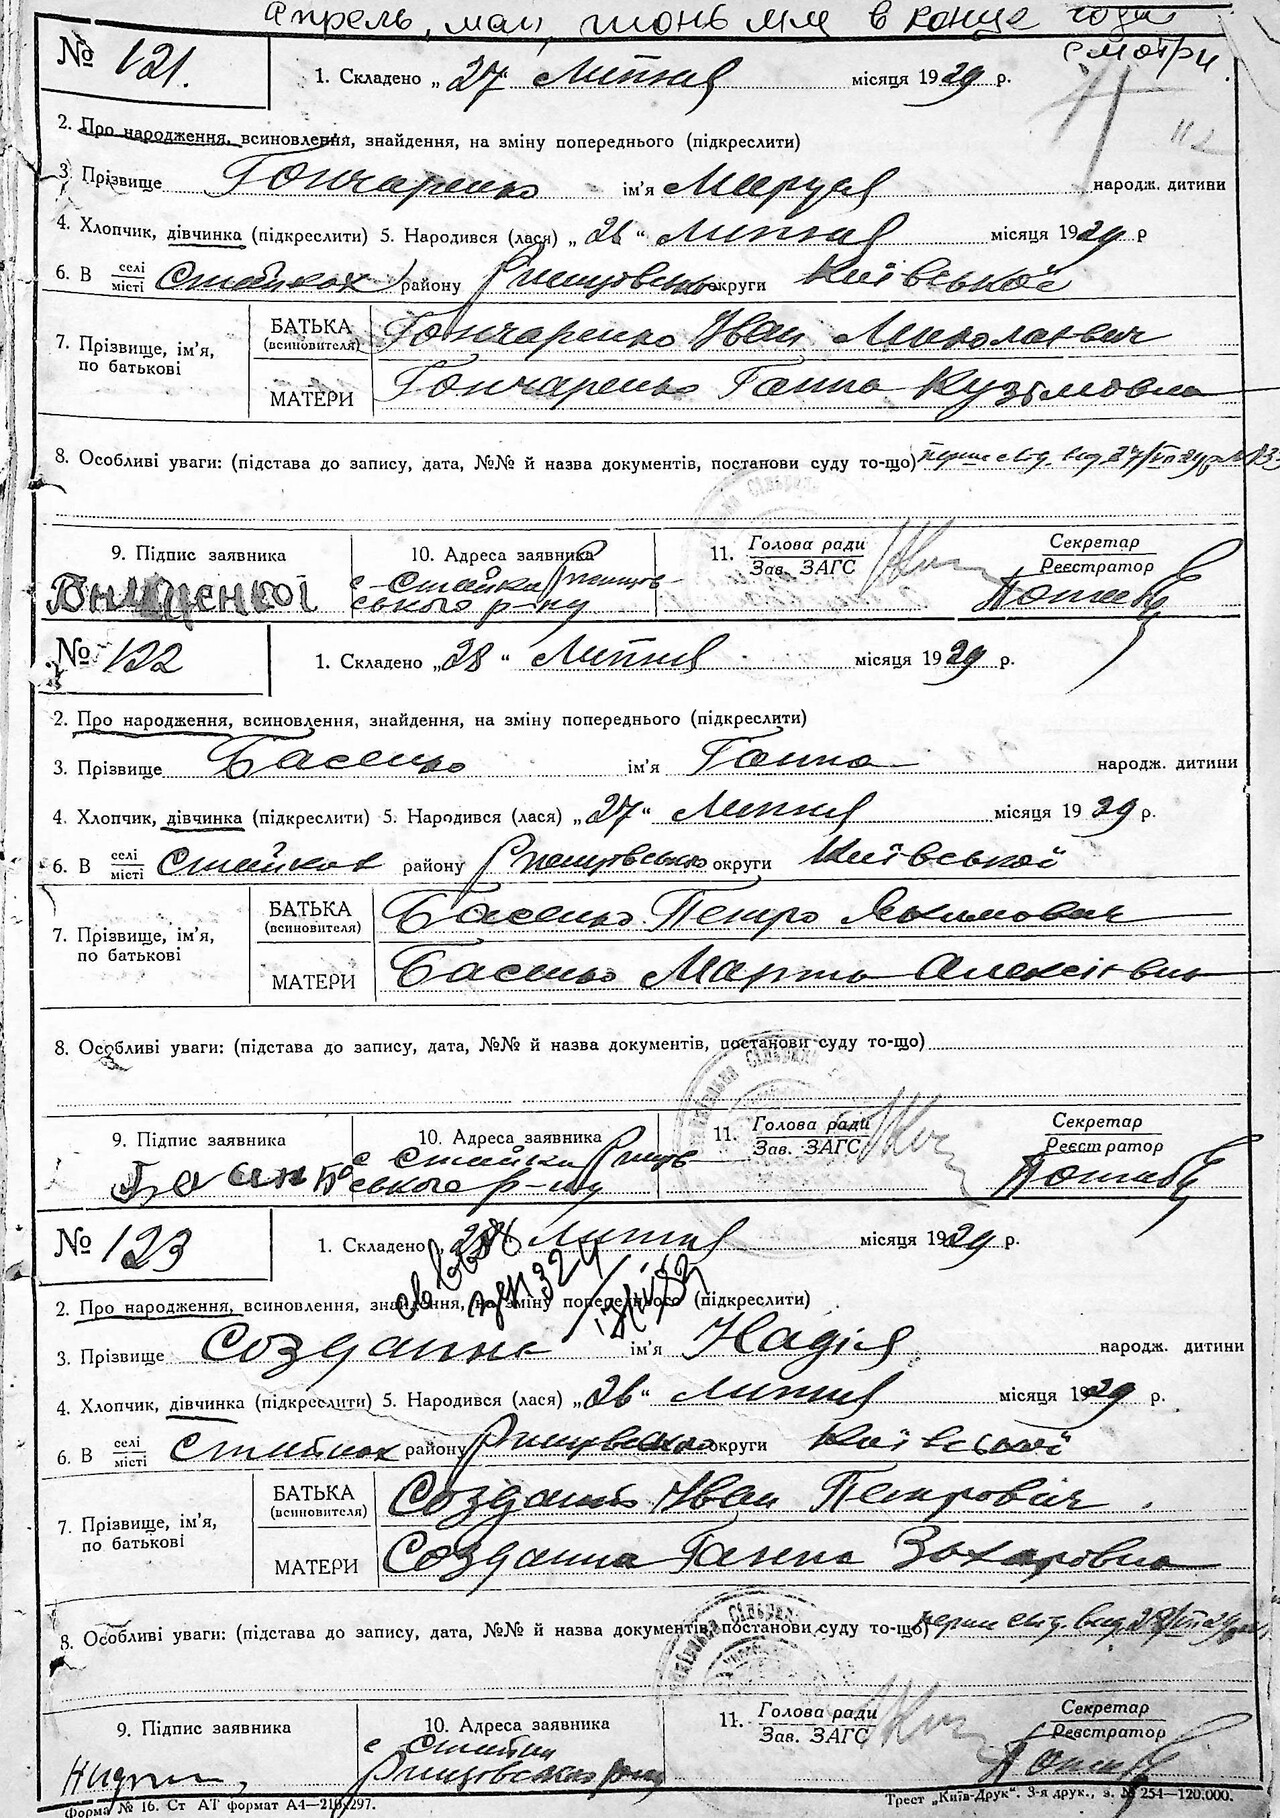 Апрель, май, июнь м-ц в конце года
смотри.
№ 121.
1. Складено „27" Липня місяця 1929 р.
2. Про народження, всиновлення, знайдення, на зміну попереднього (підкреслити)
3. Прізвище Гончаренко ім'я Маруся народж. дитини
4. Хлопчик, дівчинка (підкреслити) 5. Народився (лася) „26" Липня місяця 1929 р
6. В селі/місті Стайках району Ржищівсько округи Київської
7. Прізвище, ім'я, по батькові
БАТЬКА (всиновителя) Гончаренко Іван Миколаєвич
МАТЕРИ Гончаренко Ганна Кузьмовна
8. Особливі уваги: (підстава до запису, дата, №№ й назва документів, постанови суду то-що)
9. Підпис заявника
10. Адреса заявника
11. Голова ради / Зав. ЗАГС
Секретар / Реєстратор
с Стайки Ржищів-
ського р-ну
№ 122
1. Складено „28" Липня місяця 1929 р.
2. Про народження, всиновлення, знайдення, на зміну попереднього (підкреслити)
3. Прізвище Басенко ім'я Ганна народж. дитини
4. Хлопчик, дівчинка (підкреслити) 5. Народився (лася) „27" Липня місяця 1929 р.
6. В селі/місті Стайках району Ржищівсько округи Київської
7. Прізвище, ім'я, по батькові
БАТЬКА (всиновителя) Басенко Петро Якимович
МАТЕРИ Басенко Марта Алексієвна
8. Особливі уваги: (підстава до запису, дата, №№ й назва документів, постанови суду то-що)
9. Підпис заявника
10. Адреса заявника
11. Голова ради / Зав. ЗАГС
Секретар / Реєстратор
с Стайки Ржищів
ського р-ну
№ 123
1. Складено „28 Липня місяця 1929 р.
2. Про народження, всиновлення, знайдення, на зміну попереднього (підкреслити)
3. Прізвище Созданна ім'я Надія народж. дитини
4. Хлопчик, дівчинка (підкреслити) 5. Народився (лася) „26" Липня місяця 1929 р.
6. В селі/місті Стайках району Ржищівсько округи Київської
7. Прізвище, ім'я, по батькові
БАТЬКА (всиновителя) Создань Іван Петровіч
МАТЕРИ Созданна Ганна Захаровна
8. Особливі уваги: (підстава до запису, дата, №№ й назва документів, постанови суду то-що)
9. Підпис заявника
10. Адреса заявника
11. Голова ради / Зав. ЗАГС
Секретар / Реєстратор
с Стайки
Ржищівсько району
Форма № 16. Ст АТ формат А4—210х297.
Трест „Київ-Друк". 3-я друк., з. № 254—120.000.